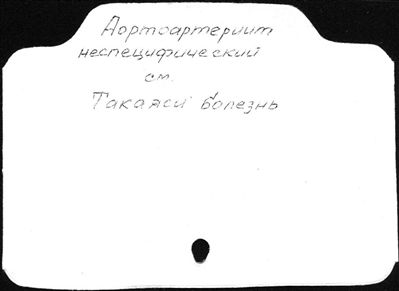 Аортоартериит
неспецифический
см.
Такаяси болезнь